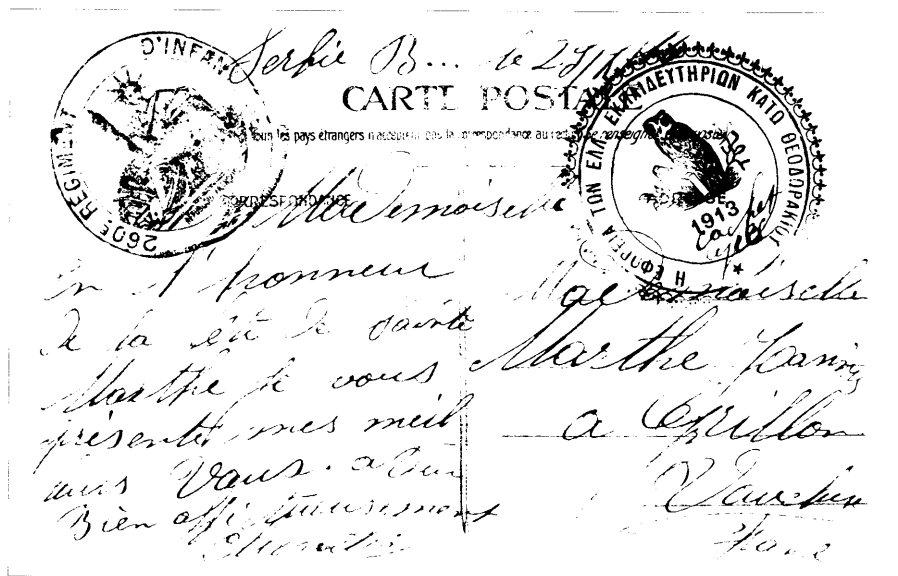 Serbie B... le
CARTE POSTALE
Tous les pays étrangers n'acceptent pas la correspondance au recto. Se renseigner
CORRESPONDANCE
260e REGIMENT D'INFAN
Η ΕΦΟΡΕΙΑ ΤΩΝ ΕΛΛ. ΕΚΠΑΙΔΕΥΤΗΡΙΩΝ ΚΑΤΩ ΘΕΟΔΩΡΑΚΙΟΥ
1913
cachet
Mademoiselle
En l'honneur
de la de Sainte
Marthe je vous
présente mes meil
eurs Vœus.
Bien affectueusement
Mademoiselle
Marthe
a Crillon
Vaucluse
France